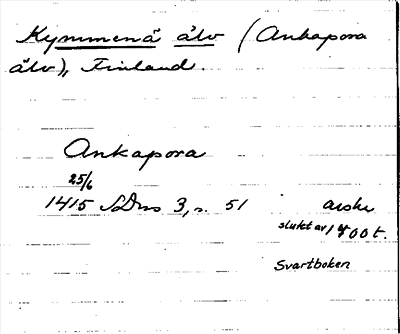 Kymmenå älv (Ankapora
älv), Finland.
Ankapora
25/6
1415 SDns 3, s. 51 avskr
slutet av 1400 t.
Svartboken